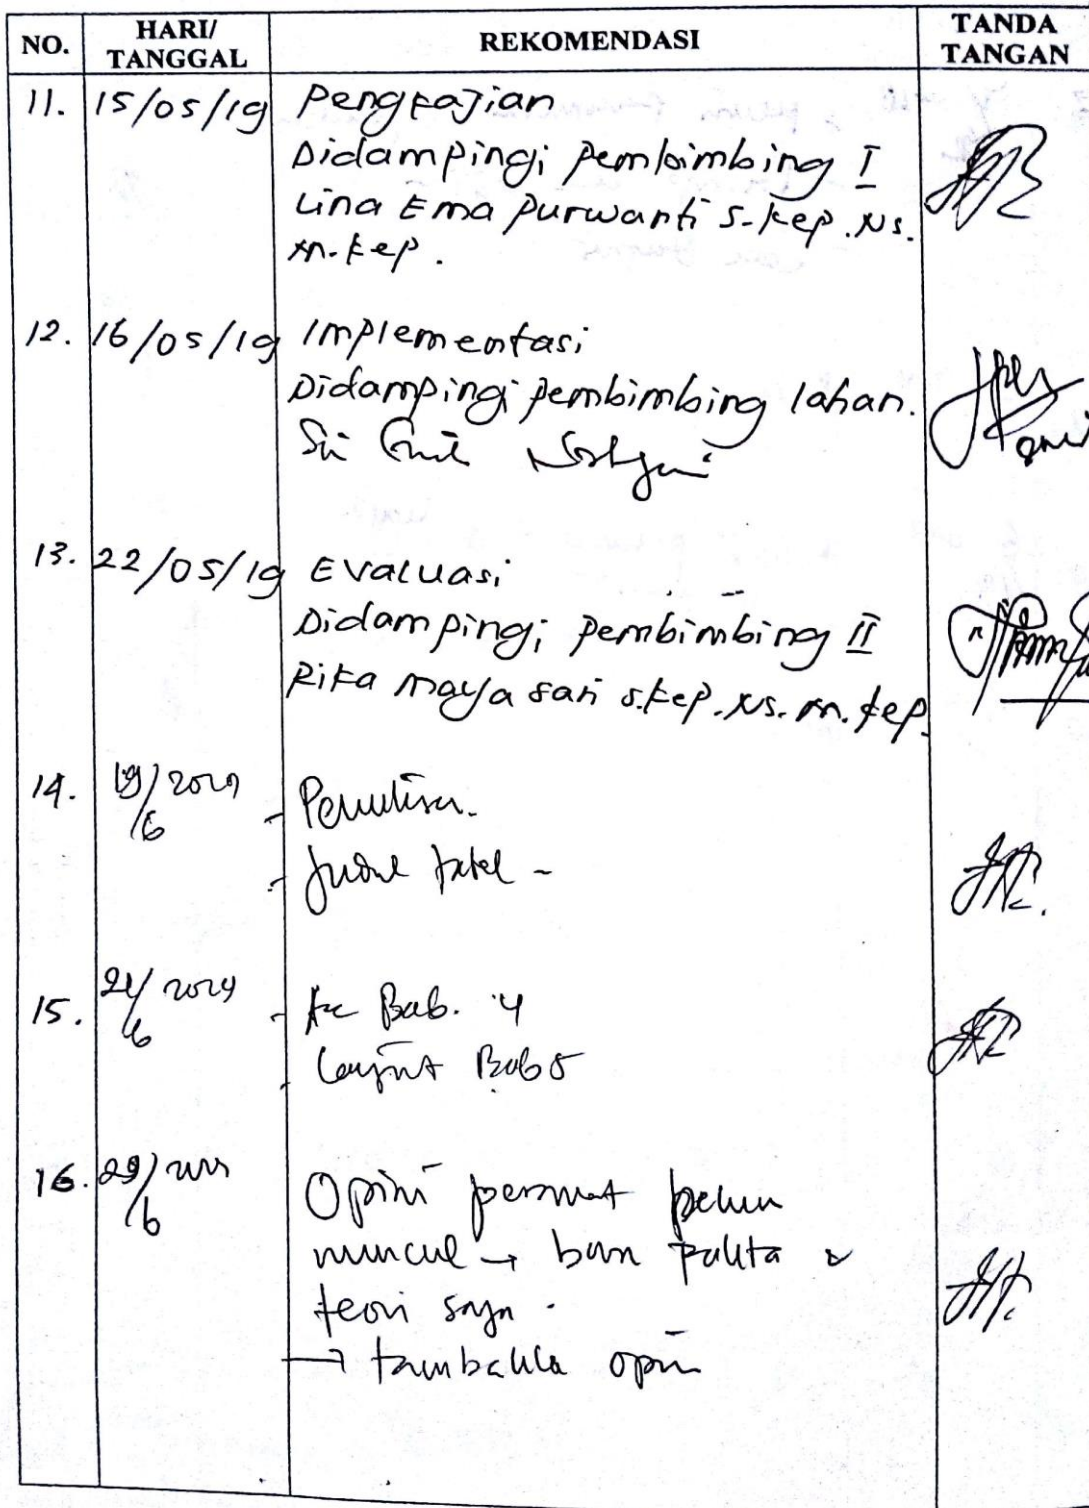 NO. HARI/ TANGGAL REKOMENDASI TANDA TANGAN
11. 15/05/19 Pengkajian
Didampingi Pembimbing I
Lina Ema Purwanti S.Kep.Ns.
M.Kep.
12. 16/05/19 Implementasi
Didampingi Pembimbing lahan.
Sri
13. 22/05/19 Evaluasi
Didampingi Pembimbing II
Rika Maya Sari S.Kep.Ns.M.Kep.
14. 19/6 - Penulisan
- Judul tabel -
15. - Acc Bab. 4
- Lanjut Bab 5
16. Opini
muncul → fakta &
teori saja.
→ opini